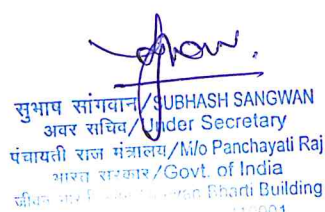 सुभाष सांगवान/SUBHASH SANGWAN
अवर सचिव/Under Secretary
पंचायती राज मंत्रालय/M/o Panchayati Raj
भारत सरकार/Govt. of India
Bharti Building